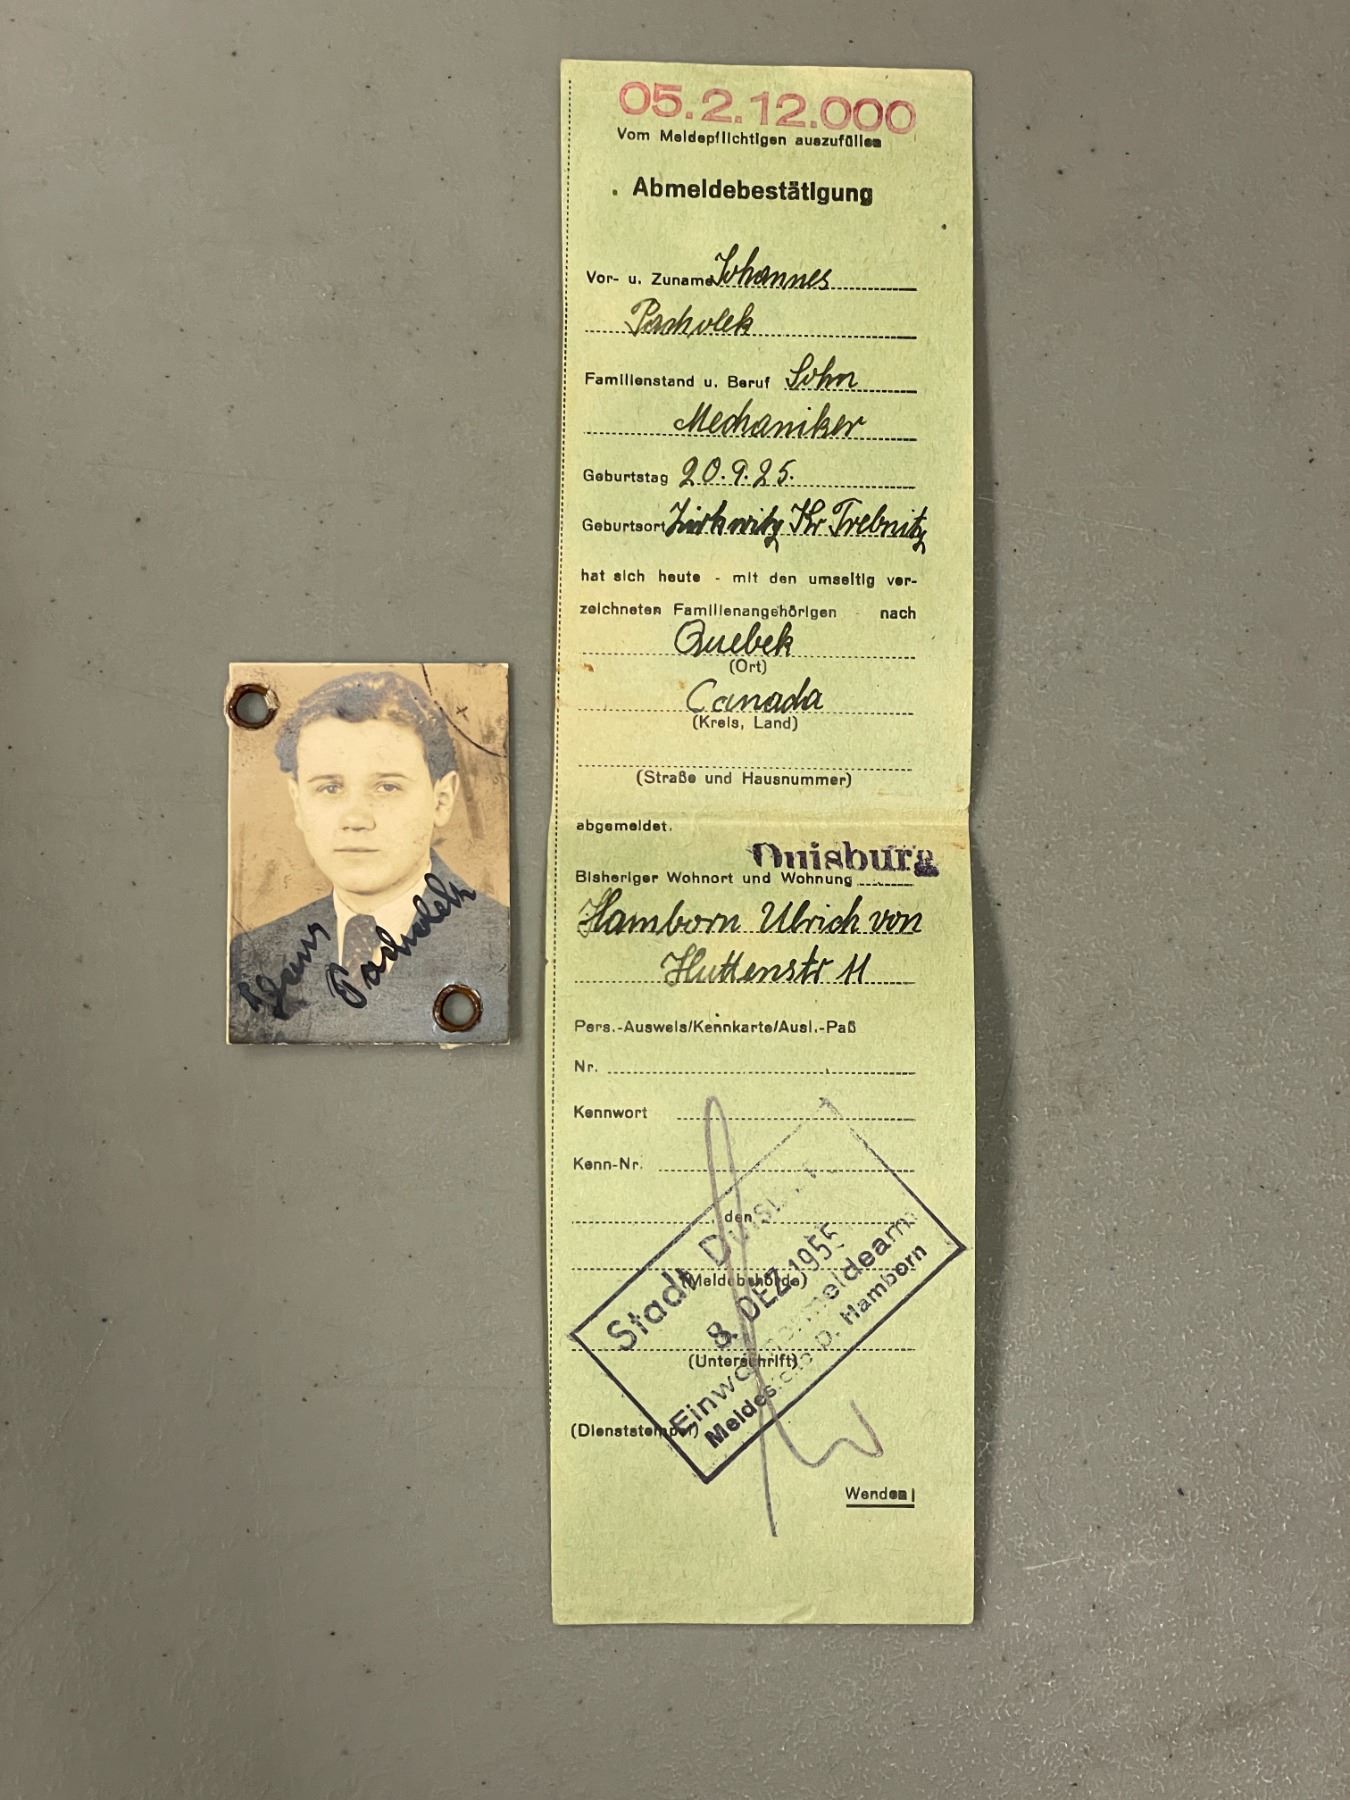 05.2.12.000
Vom Meldepflichtigen auszufüllen
Abmeldebestätigung
Vor- u. Zuname Johannes
Pacholek
Familienstand u. Beruf Sohn
Mechaniker
Geburtstag 20.9.25.
Geburtsort Zirkwitz Kr Trebnitz
hat sich heute - mit den umseitig ver-
zeichneten Familienangehörigen - nach
Quebek
(Ort)
Canada
(Kreis, Land)
(Straße und Hausnummer)
abgemeldet.
Duisburg
Bisheriger Wohnort und Wohnung
Hamborn Ulrich von
Huttenstr 11
Pers.-Ausweis/Kennkarte/Ausl.-Paß
Nr.
Kennwort
Kenn-Nr.
, den
(Meldebehörde)
(Unterschrift)
(Dienststempel)
Stadt Duisburg
8. DEZ. 1955
Einwohnermeldeamt
Meldestelle D. Hamborn
Wenden!
Hans
Pacholek